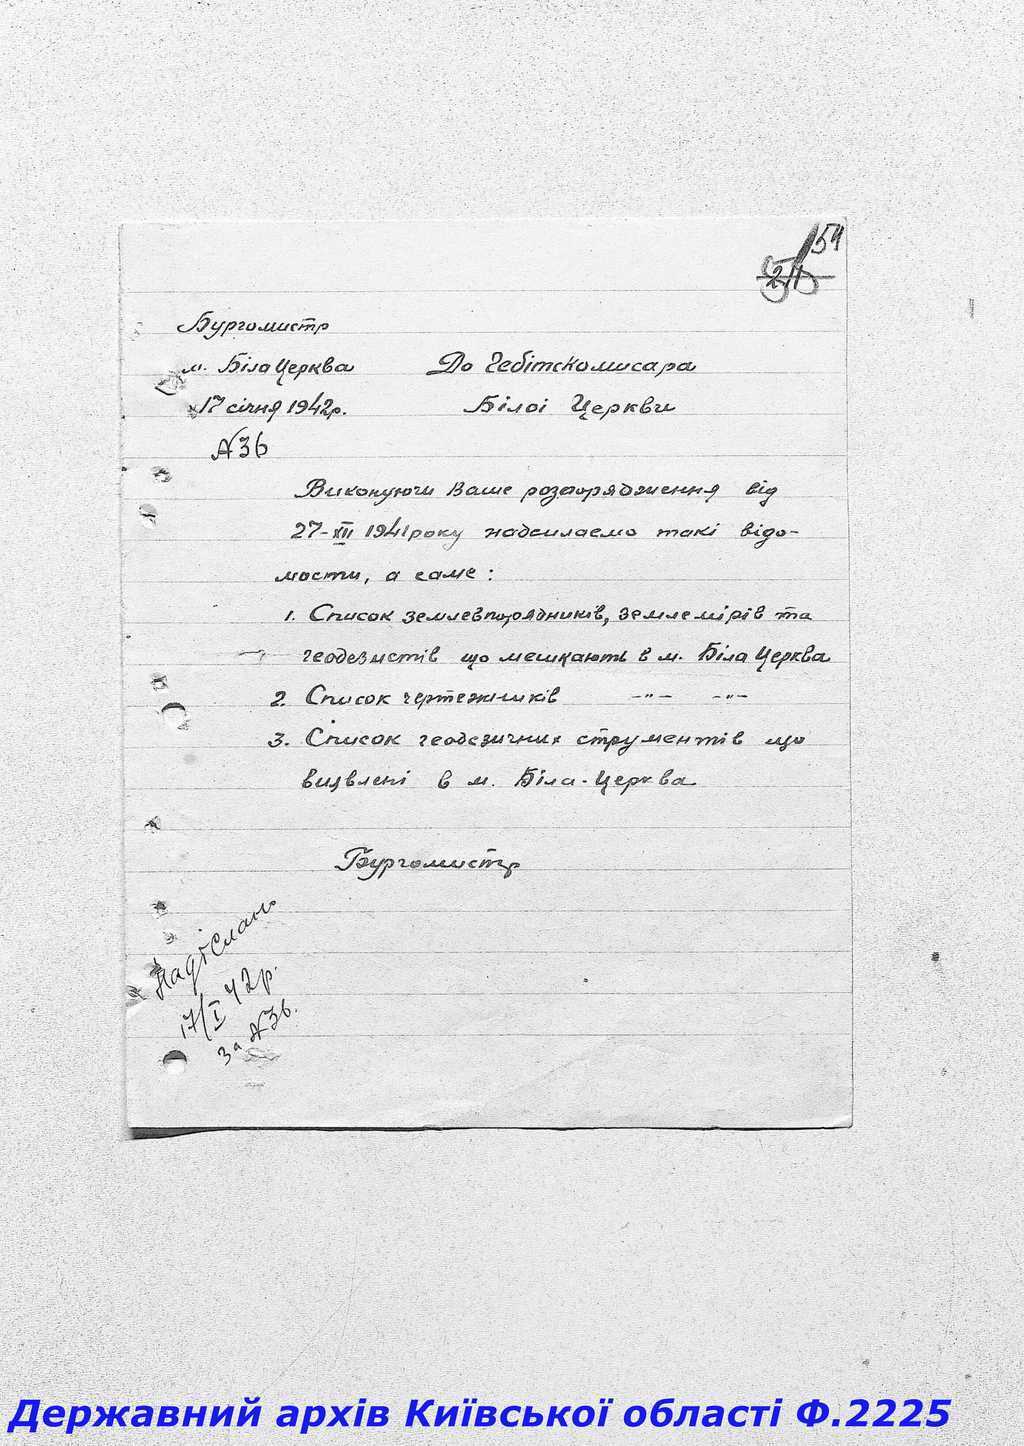 54
Бургомистр
м. Біла Церква До Гебітскомисара
17 січня 1942р. Білоі Церкви
№36
Виконуючи Ваше розпорядження від
27-XII 1941 року надсилаемо такі відо-
мости, а саме:
1. Список землевпорядників, землемірів та
геодезистів що мешкають в м. Біла Церква
2. Список чертежників -"- -"-
3. Список геодезичних струментів що
виявлені в м. Біла-Церква
Бургомистр
Надіслано
17/I 42р.
за №36.
Державний архів Київської області Ф.2225